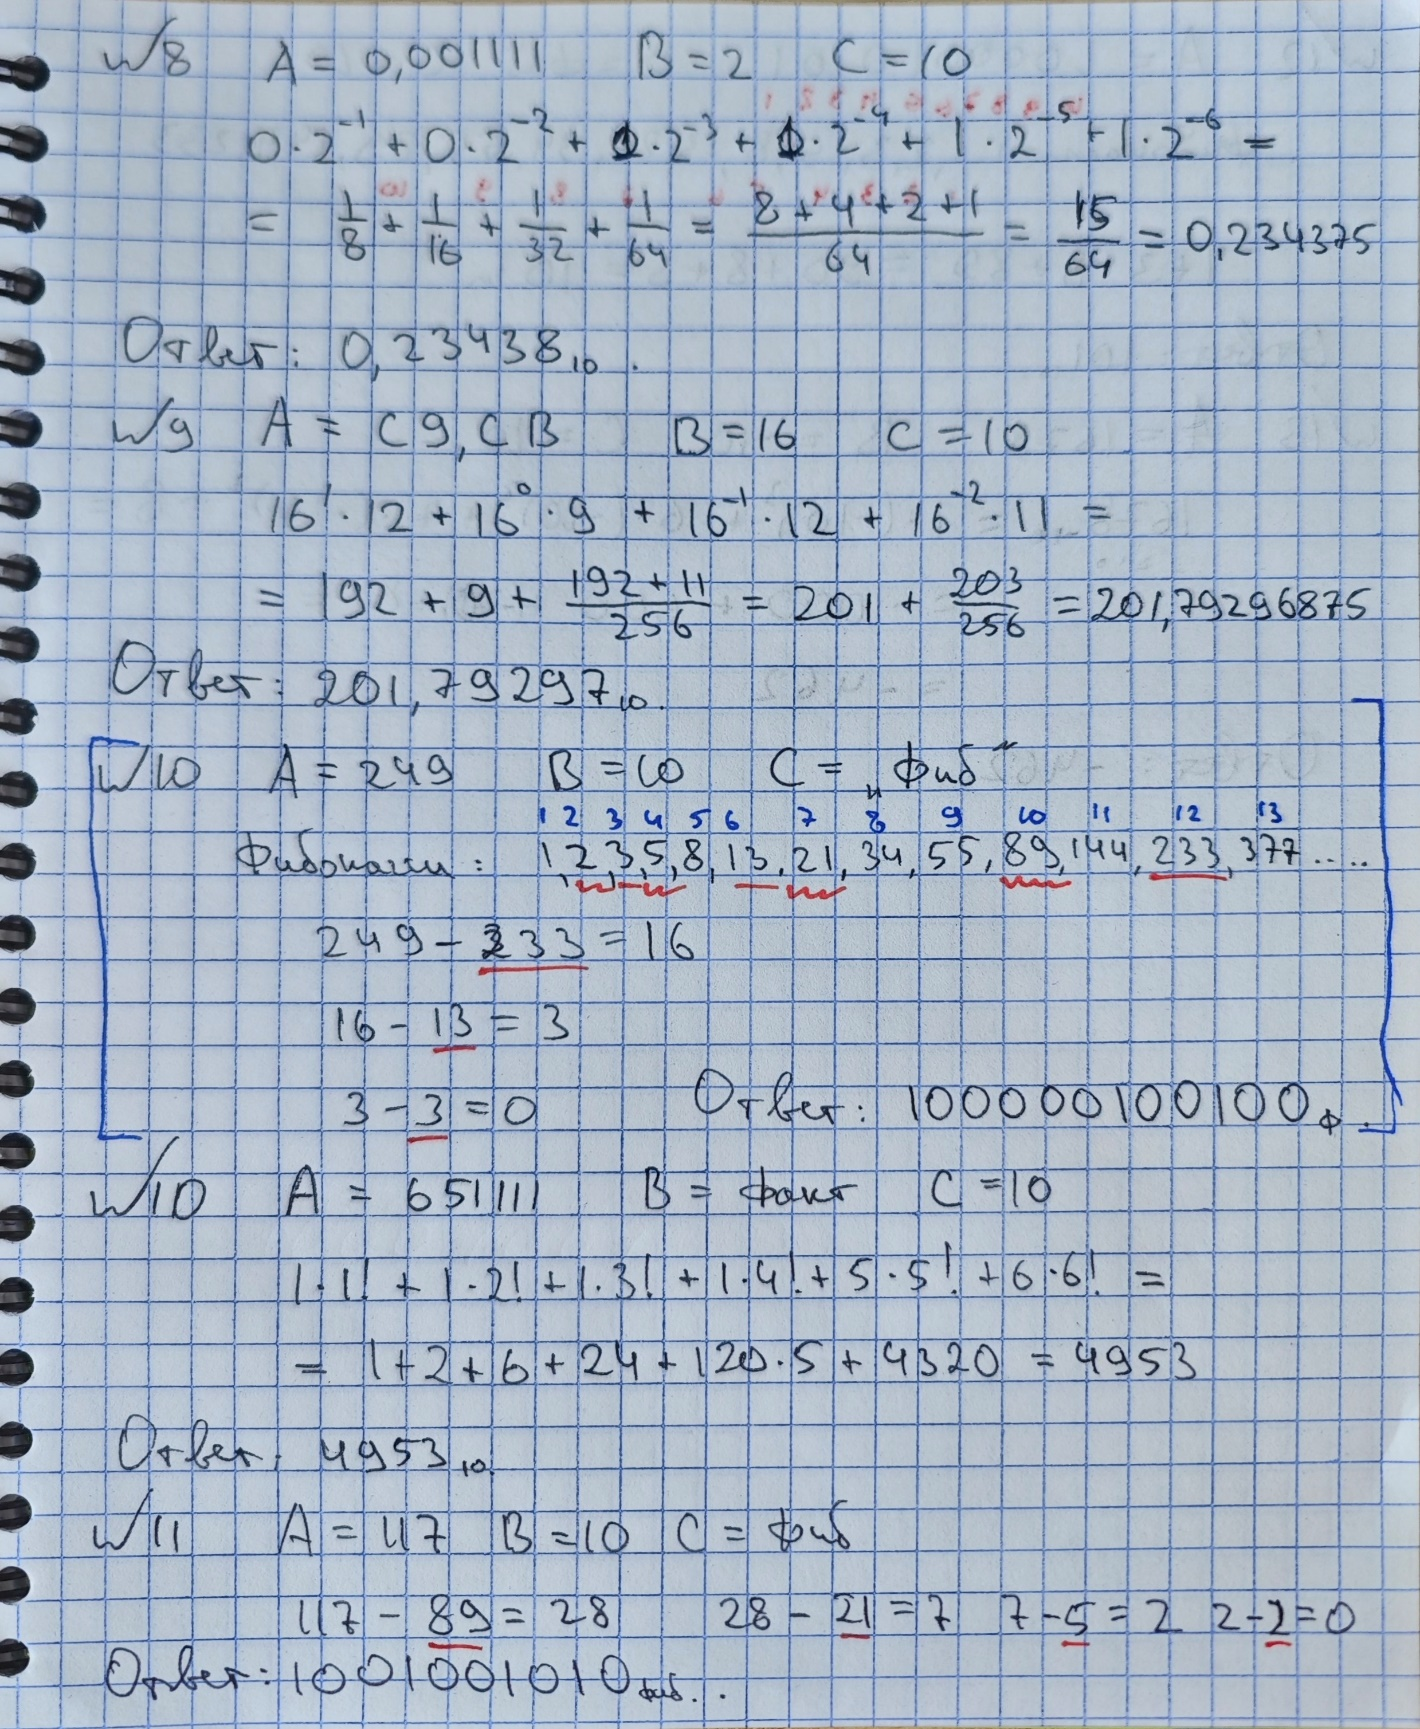 №8 A = 0,001111 B = 2 C = 10
0·2⁻¹ + 0·2⁻² + 1·2⁻³ + 1·2⁻⁴ + 1·2⁻⁵ + 1·2⁻⁶ =
= 1/8 + 1/16 + 1/32 + 1/64 = (8+4+2+1)/64 = 15/64 = 0,234375
Ответ: 0,23438₁₀.
№9 A = C9,CB B = 16 C = 10
16¹·12 + 16⁰·9 + 16⁻¹·12 + 16⁻²·11 =
= 192 + 9 + (192+11)/256 = 201 + 203/256 = 201,79296875
Ответ: 201,79297₁₀.
№10 A = 249 B = 10 C = „Фиб"
1 2 3 4 5 6 7 8 9 10 11 12 13
Фибоначчи: 1,2,3,5,8,13,21,34,55,89,144,233,377....
249 - 233 = 16
16 - 13 = 3
3 - 3 = 0 Ответ: 100000100100ф.
№10 A = 651111 B = факт C = 10
1·1! + 1·2! + 1·3! + 1·4! + 5·5! + 6·6! =
= 1+2+6+24+120·5+4320 = 4953
Ответ: 4953₁₀.
№11 A = 117 B = 10 C = фиб
117 - 89 = 28 28 - 21 = 7 7 - 5 = 2 2 - 2 = 0
Ответ: 1001001010фиб...